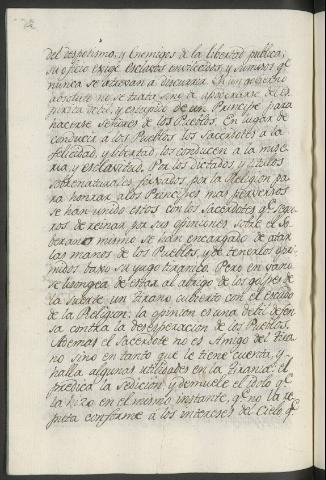 del despotismo, y Enemigos de la libertad publica;
su oficio exige Esclavos envilecidos, y sumisos qe
nunca se atrevan a discurrir. En un govierno
absoluto no se trata sino de apoderarse del es
piritu debil, y estupido de un Principe para
hacerse Señores de los Pueblos. En lugar de
conducir à los Pueblos los Sacerdotes à la
felicidad, y libertad, los conducen à la mise
ria, y esclavitud. Por los dictados, y titulos
sobrenaturales forxados por la Religion pa
ra honrar à los Principes mas perversos
se han unido estos con los Sacerdotes qe segu
ros de reinar por sus opiniones sobre el So
berano mismo se han encargado de atar
las manos de los Pueblos, y de tenerlos opri
midos baxo su yugo tiranico. Pero en vano
se lisongea de estar al abrigo de los golpes de
la suerte un tirano cubierto con el escudo
de la Religion: la opinion es una debil defen
sa contra la desesperacion de los Pueblos.
Ademas el Sacerdote no es Amigo del Tira
no sino en tanto que le tiene cuenta, y
halla algunas utilidades en la tirania: el
predica la sedicion, y demuele el idolo qe
la hizo en el mismo instante, qe no la re
puta conforme à los intereses del Cielo qe